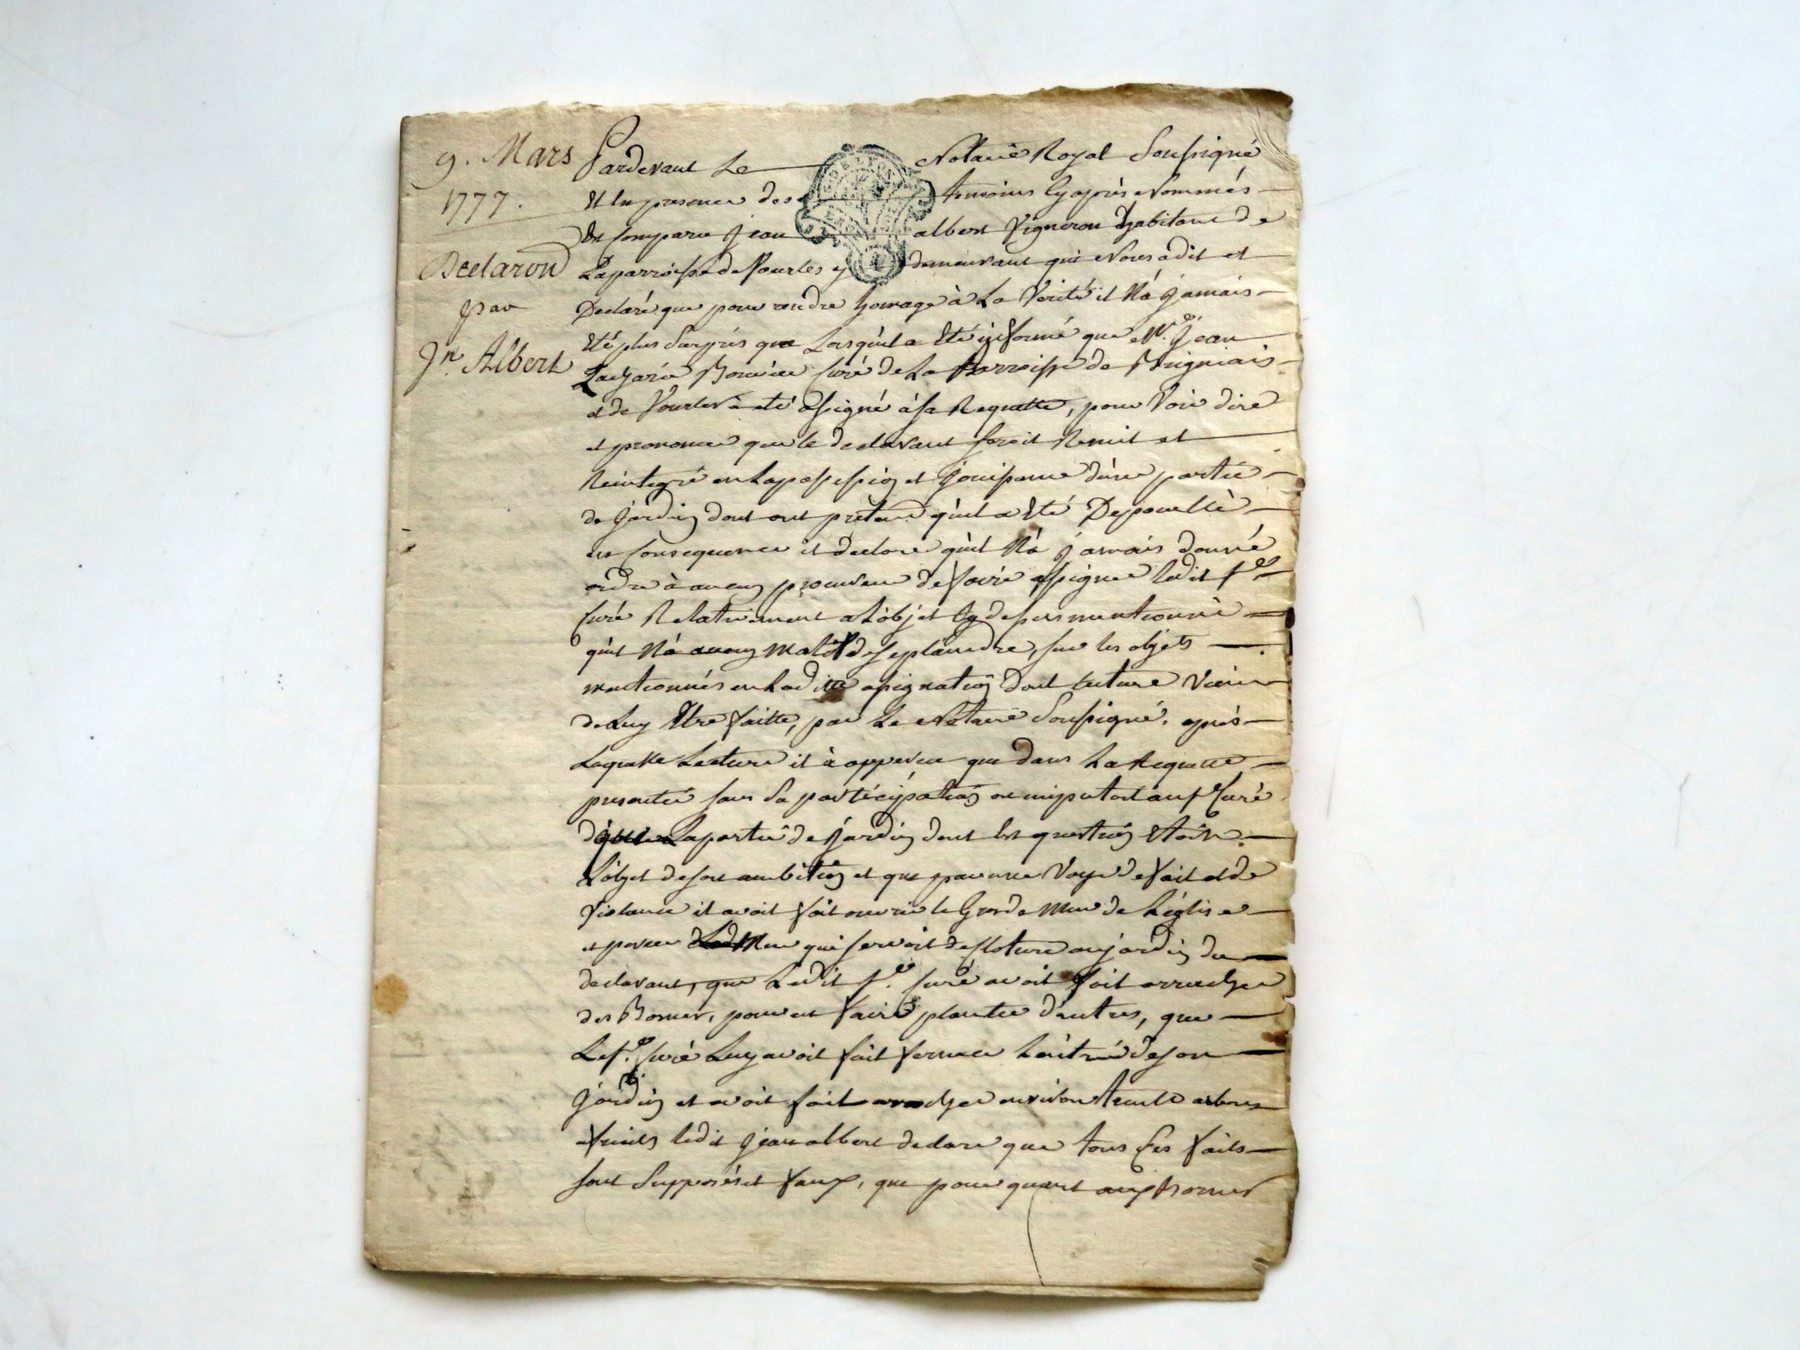 9. Mars
1777.
Declaron
par
Jn. Albert
Pardevant Le Notaire Royal Soussigné
Et En presence des temoins Cy après Nommés
Est Comparu Jean albert Vigneron habitant de
Laparroisse de y demeurant qui Nous a dit et
Declaré que pour rendre homage à La Verité il N'à jamais
Eté plus Surpris que Lorsquil a Eté informé que Mr. Jean
Curé de La Parroisse de
et de à eté assigné à sa Requette, pour Voir dire
et prononcer que le declarant seroit Remit et
Reintegré en Lapossession et jouissance d'une partie
de Jardin dont ont pretend qu'il a Eté Depouillé
en Consequence il declare qu'il N'à jamais donné
ordre à aucun procureur de faire assigner ledit sr.
Curé Relativement a L'objet Cy dessus mentionné
qu'il N'à aucun Motif de se plaindre, sur les objets
mentionnés en Ladite assignation Dont lecture Vient
de Luy Etre faitte, par Le Notaire Soussigné, après
Laquelle Lecture il à apperceu que dans La Requette
presentée sans Sa participation on imputoit au sr Curé
Lapartie de Jardin dont est question Etoit
L'objet de son ambition et que par une Voye de fait et de
Violance il avoit fait ouvrir le Grand Mur de L'église
et percer Mur qui servoit de Cloture au jardin du
declarant, que Ledit sr. Curé avoit fait arracher
des Bornes, pour en faire planter d'autres, que
Le sr. Curé Luy avoit fait fermer L'entrée de son
Jardin et avoit fait arracher environ trente arbres
fruits ledit Jean albert declare que tous Ces faits
sont Supposés et faux, que pour quant aux Bornes